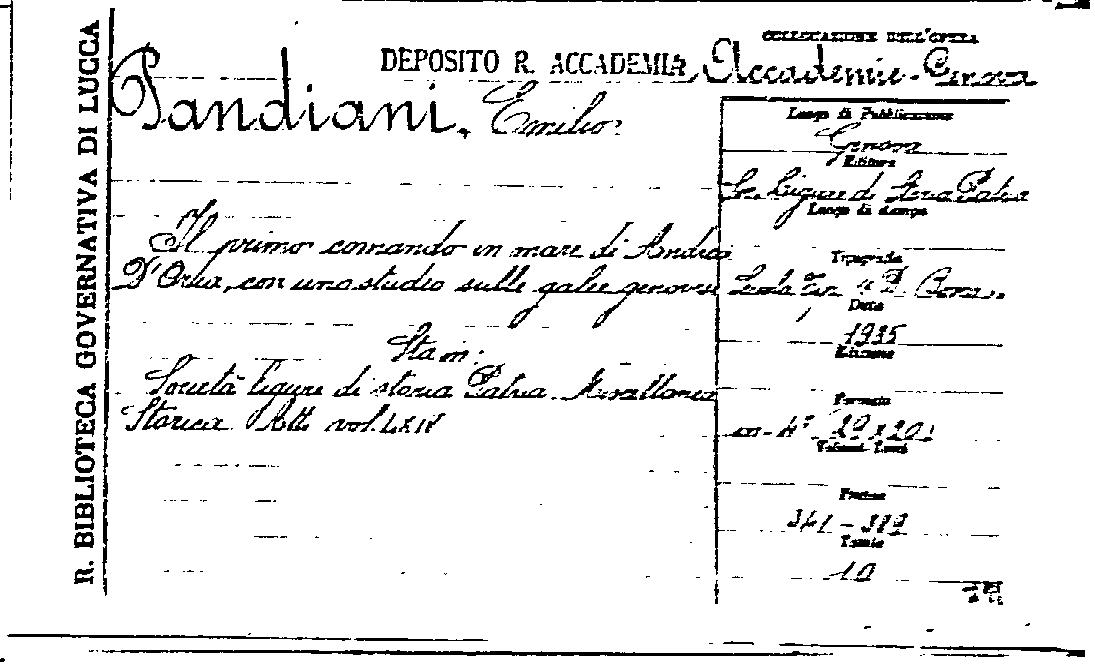 R. BIBLIOTECA GOVERNATIVA DI LUCCA
COLLOCAZIONE DELL'OPERA
DEPOSITO R. ACCADEMIA Accademie-Genova
Pandiani, Emilio
Luogo di Pubblicazione
Genova
Editore
Soc. Ligure di Storia Patria
Luogo di stampa
Il primo comando in mare di Andrea
D'Oria, con uno studio sulle galee genovesi
Tipografia
Scuola Tip. D. Bosco
Data
1935
Edizione
Stam:
Società ligure di storia Patria. Miscellanea
Storica Atti vol. LXIV
Formato
in-4°
Volumi
Pagine
341-389
Tavole
10